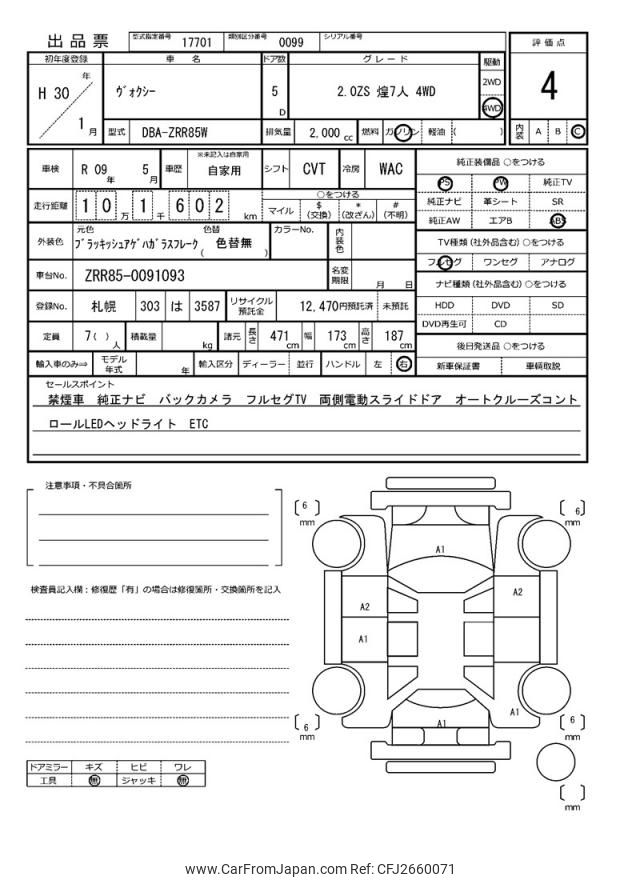 出品票 型式指定番号 17701 類別区分番号 0099 シリアル番号
評価点
4
内装 A B C
初年度登録 車名 ドア数 グレード 駆動
H 30 年 1 月
ヴォクシー 5 D 2.0ZS 煌7人 4WD 2WD 4WD
型式 DBA-ZRR85W 排気量 2,000 cc 燃料 ガソリン 軽油 ( )
車検 R 09 年 5 月 車歴 ※未記入は自家用 自家用 シフト CVT 冷房 WAC
走行距離 1 0 万 1 千 6 0 2 km ○をつける
マイル $ (交換) * (改ざん) # (不明)
外装色 元色 ブラッキッシュアゲハガラスフレーク 色替 ( 色替無 ) カラーNo. 内装色
車台No. ZRR85-0091093 名変期限 月 日
登録No. 札幌 303 は 3587 リサイクル預託金 12,470円預託済 未預託
定員 7( ) 人 積載量 kg 諸元 長さ 471 cm 幅 173 cm 高さ 187 cm
輸入車のみ⇒ モデル年式 年 輸入区分 ディーラー 並行 ハンドル 左 右
純正装備品 ○をつける
PS PW 純正TV
純正ナビ 革シート SR
純正AW エアB ABS
TV種類 (社外品含む) ○をつける
フルセグ ワンセグ アナログ
ナビ種類 (社外品含む) ○をつける
HDD DVD SD
DVD再生可 CD
後日発送品 ○をつける
新車保証書 車輌取説
セールスポイント
禁煙車 純正ナビ バックカメラ フルセグTV 両側電動スライドドア オートクルーズコント
ロールLEDヘッドライト ETC
注意事項・不具合箇所
検査員記入欄:修復歴「有」の場合は修復箇所・交換箇所を記入
ドアミラー キズ ヒビ ワレ
工具 無 ジャッキ 無
6 mm
6 mm
A1
A2 A2
A1
A1 A1
6 mm
6 mm
mm
www.CarFromJapan.com Ref: CFJ2660071